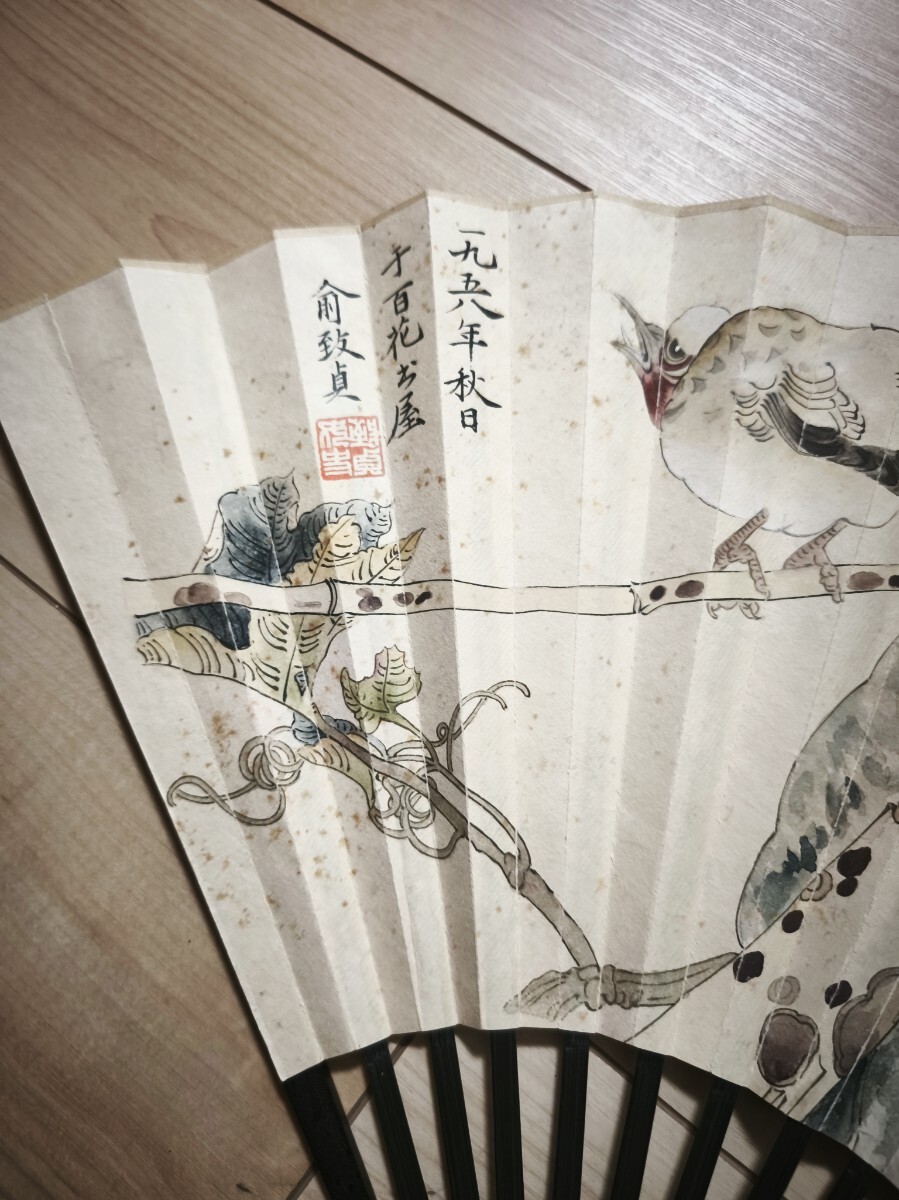 一九五八年秋日
于百花书屋
俞致贞
致贞